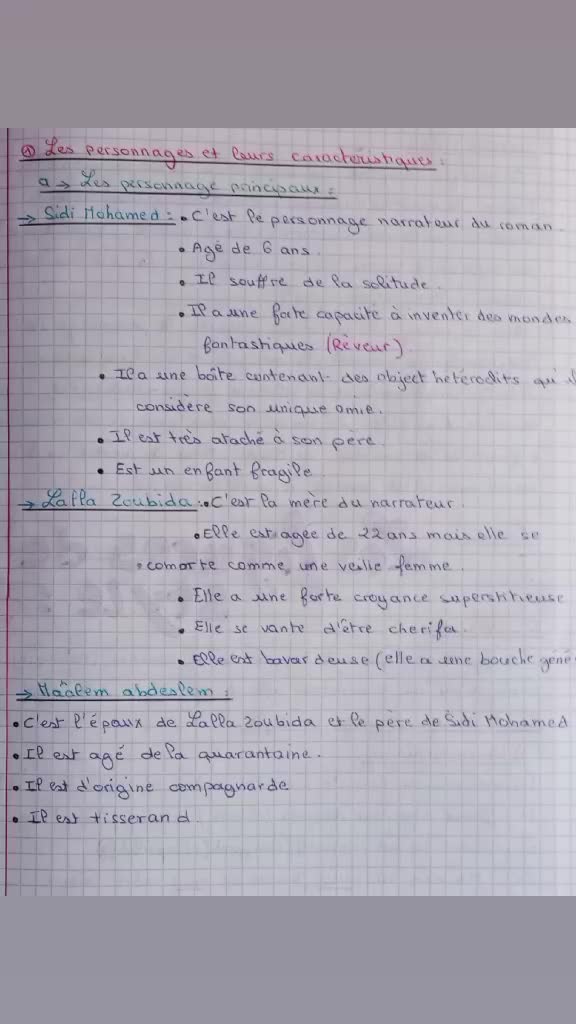 ① Les personnages et leurs caractéristiques:
a → Les personnage principaux:
→ Sidi Mohamed: • C'est le personnage narrateur du roman.
• Agé de 6 ans.
• Il souffre de la solitude.
• Il a une forte capacité à inventer des mondes
fantastiques (Rêveur).
• Il a une boîte contenant des object hétérodits qu'il
considère son unique amie.
• Il est très ataché à son père.
• Est un enfant fragile
→ Lalla Zoubida: • C'est la mère du narrateur.
• Elle est agée de 22 ans mais elle se
comorte comme une veille femme.
• Elle a une forte croyance superstitieuse
• Elle se vante d'être cherifa.
• Elle est bavardeuse (elle a une bouche géné
→ Maâlem abdeslem:
• C'est l'époux de Lalla Zoubida et le père de Sidi Mohamed
• Il est agé de la quarantaine.
• Il est d'origine compagnarde
• Il est tisserand.